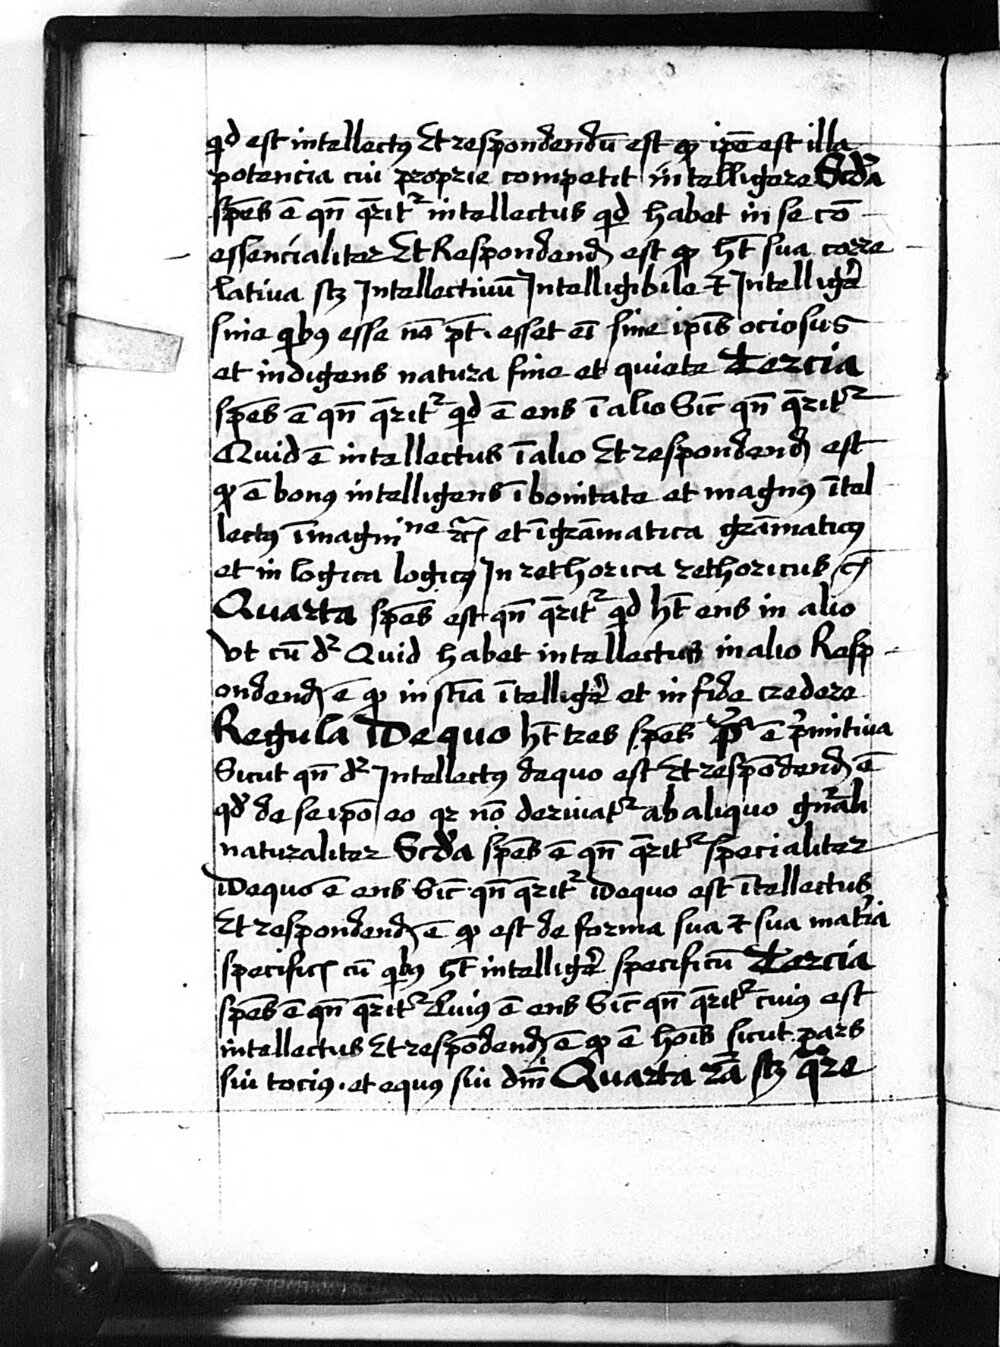 qd est intellectꝰ Et respondendū est ꝙ ip̄e est illa
potencia cui proprie competit intelligere Scd̓a
sp̄es ē qn̄ q̄rit᷑ intellectus qd habet in se cō
essencialiter Et Respondend̕ est ꝙ hꝫ sua corre
lativa sꝫ Intellectiuū Intelligibile ⁊ Intellig̕e
sine qͥbꝰ esse nō pt̄. esset ei̅ sine ip̄is ociosus
et indigens natura fine et quiete Tercia
sp̄es ē qn̄ q̄rit᷑ qd ē ens ī alio Sic̄ qn̄ q̄rit᷑
Quid ē intellectus ī alio Et respondend̕ est
ꝙ ē bonꝰ intelligens ī bonitate et magnꝰ ītel
lectꝰ ī magnine rc̄ et ī gra̅matica gra̅maticꝰ
et in logica logicꝰ In rethorica rethoricus rc̄
Quarta sp̄es est qn̄ q̄rit᷑ qd ht̄ ens in alio
Vt cū dr̄ Quid habet intellectus in alio Resp
ondend̕ ē ꝙ in sc̄ia ītellig̕e et in fide credere
Regula De quo ht̄ tres sp̄es pª ē p̓mitiua
Sicut qn̄ dr̄ Intellectꝰ de quo est Et respōdend̕ ē
qd̓ de se ip̄o eo qr nō deriuat᷑ ab aliquo gn̄ali
naturaliter Scd̓a sp̄es ē qn̄ q̄rit᷑ specialiter
De quo ē ens Sic̄ qn̄ q̄rit᷑ De quo est ītellectus
Et respondend̕ ē ꝙ est de forma sua ⁊ sua mat̓ia
specific̄ cū qͥbꝰ ht̄ intellig̕e specificū Tercia
sp̄es ē qn̄ q̄rit᷑ Cuiꝰ ē ens Sic̄ qn̄ q̄rit᷑ cuiꝰ est
intellectus Et respōdend̕ ē ꝙ ē hoīs sicut pars
sui tociꝰ. et equꝰ sui dn̄i Quarta rā sꝫ qͣre